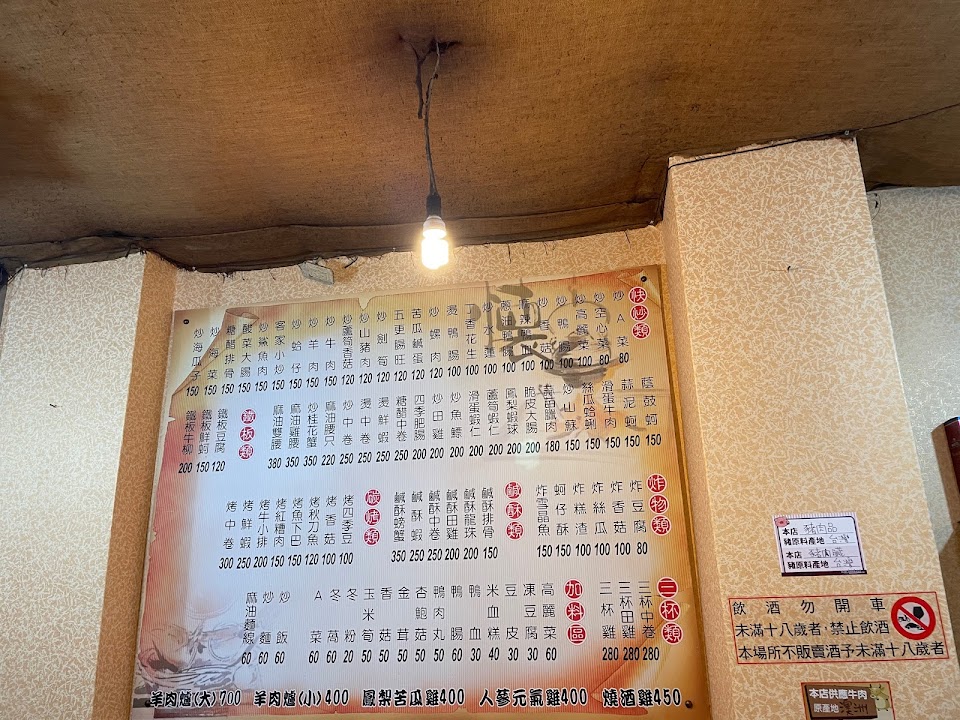 快炒類
炒A菜 80
炒空心菜 80
炒高麗菜 100
炒鴨腸 100
炒香菇
麻辣鴨血
炒水蓮 100
香花生 100
燙鴨腸 100
炒螺肉 120
苦瓜鹹蛋 120
五更腸旺 120
炒劍筍 120
炒山豬肉 120
炒蘆筍香菇 120
炒牛肉 150
炒羊肉 150
炒蛤仔 150
客家小炒 150
炒鯊魚肉 150
酸菜大腸 150
糖醋排骨 150
炒海菜 150
炒海瓜子 150
蔭鼓蚵 150
蒜泥蚵 150
滑蛋牛肉 150
絲瓜蛤蜊 150
炒山蘇 150
蒜苗臘肉 180
脆皮大腸 200
鳳梨蝦球 200
蘆筍蝦仁 200
滑蛋蝦仁 200
炒魚鰾 200
炒田雞 200
四季肥腸 200
糖醋中卷 250
燙鮮蝦 250
燙中卷 250
炒中卷 250
麻油腰只 220
炒桂花蟹 350
麻油雞腰 350
麻油雙腰 380
鐵板類
鐵板豆腐 120
鐵板鮮蚵 150
鐵板牛柳 200
炸物類
炸豆腐 80
炸香菇 100
炸絲瓜 100
炸糕渣 100
蚵仔酥 150
炸雪晶魚 150
鹹酥類
鹹酥排骨 150
鹹酥龍珠 200
鹹酥田雞 200
鹹酥中卷 250
鹹酥蝦 250
鹹酥螃蟹 350
碳烤類
烤四季豆 100
烤香菇 100
烤秋刀魚 100
烤魚下巴 150
烤紅糟肉 150
烤牛小排 200
烤鮮蝦 250
烤中卷 300
三杯類
三杯中卷 280
三杯田雞 280
三杯雞 280
加料區
高麗菜 60
凍豆腐 30
豆皮 30
米血糕 40
鴨血 30
鴨腸 60
鴨肉丸 50
杏鮑菇 50
金茸 50
香菇 50
玉米筍 50
冬粉 20
冬蒿 60
A菜 60
炒飯 60
炒麵 60
麻油麵線 60
羊肉爐(大)700 羊肉爐(小)400 鳳梨苦瓜雞400 人蔘元氣雞400 燒酒雞450
本店 豬肉品
豬原料產地 台灣
本店
豬原料產地 台灣
飲酒勿開車
未滿十八歲者，禁止飲酒
本場所不販賣酒予未滿十八歲者
本店供應牛肉
原產地